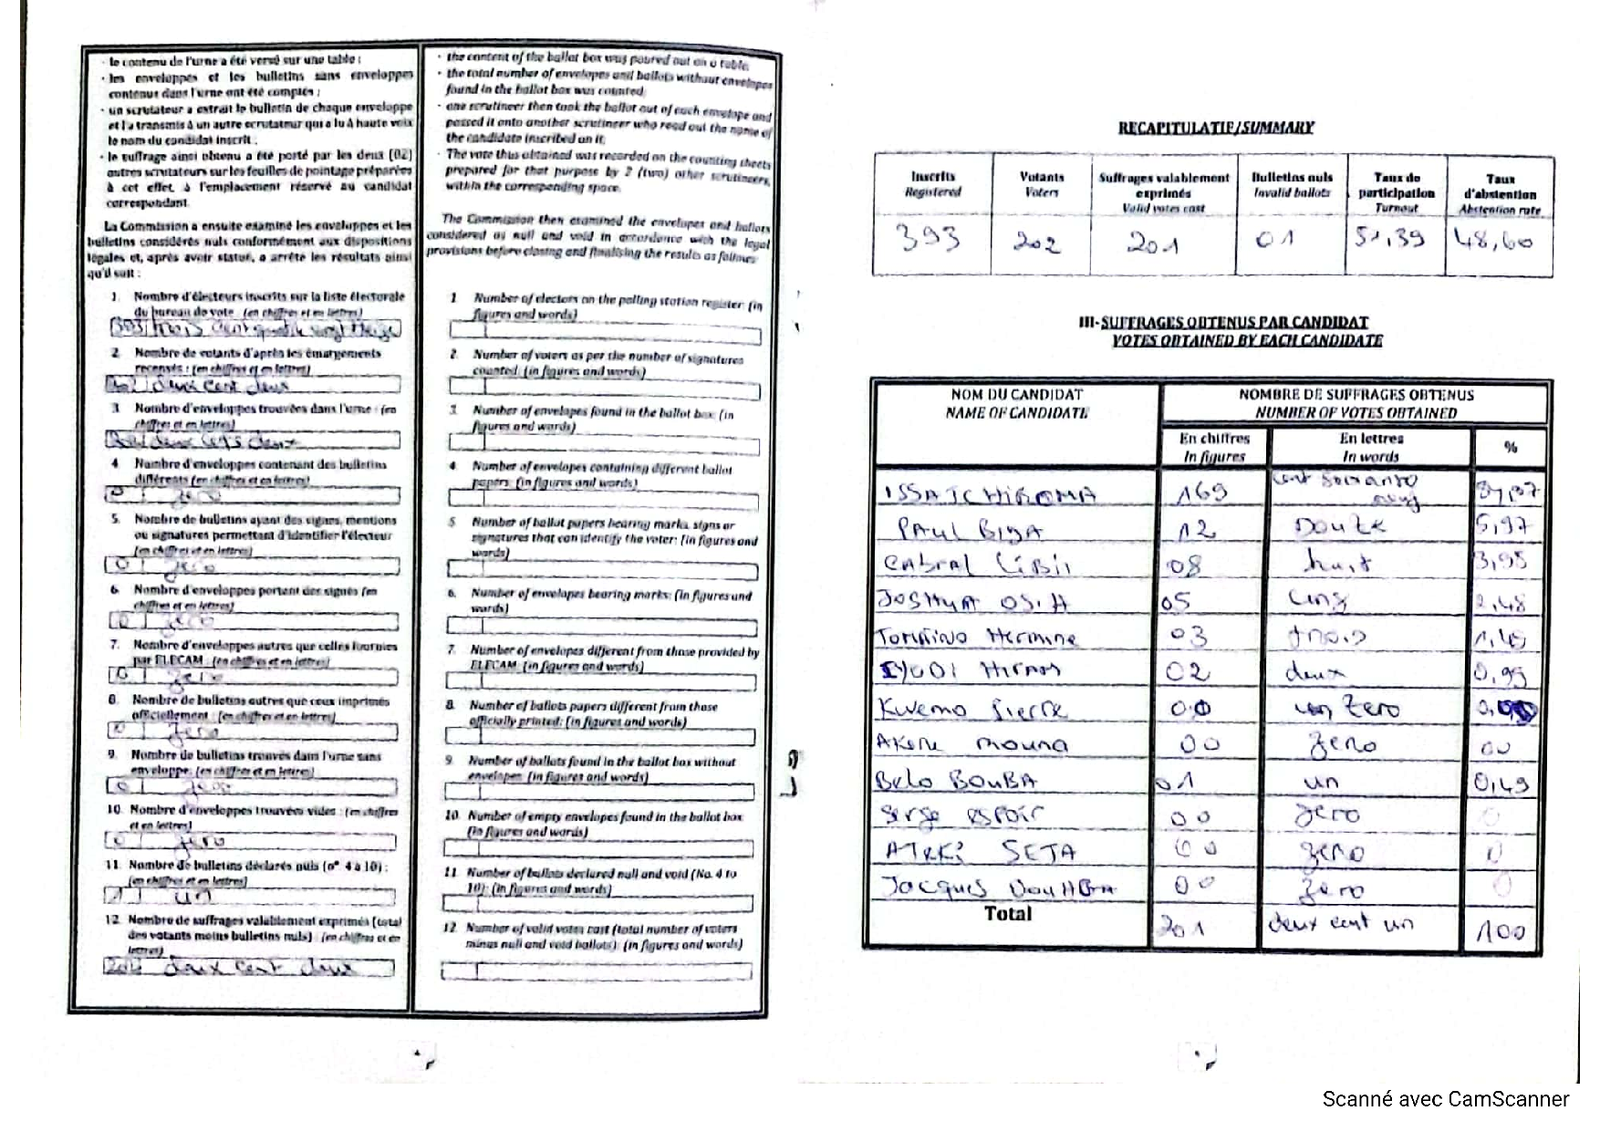 · le contenu de l'urne a été versé sur une table ;
· les enveloppes et les bulletins sans enveloppes
contenus dans l'urne ont été comptés ;
· un scrutateur a extrait le bulletin de chaque enveloppe
et l'a transmis à un autre scrutateur qui a lu à haute voix
le nom du candidat inscrit ;
· le suffrage ainsi obtenu a été porté par les deux (02)
autres scrutateurs sur les feuilles de pointage préparées
à cet effet, à l'emplacement réservé au candidat
correspondant.
La Commission a ensuite examiné les enveloppes et les
bulletins considérés nuls conformément aux dispositions
légales et, après avoir statué, a arrêté les résultats ainsi
qu'il suit :
1. Nombre d'électeurs inscrits sur la liste électorale
du bureau de vote : (en chiffres et en lettres)
393 trois cent quatre vingt treize
2. Nombre de votants d'après les émargements
recensés : (en chiffres et en lettres)
202 deux cent deux
3. Nombre d'enveloppes trouvées dans l'urne : (en
chiffres et en lettres)
deux cents deux
4. Nombre d'enveloppes contenant des bulletins
différents (en chiffres et en lettres)
0 zero
5. Nombre de bulletins ayant des signes, mentions
ou signatures permettant d'identifier l'électeur
(en chiffres et en lettres)
0 zero
6. Nombre d'enveloppes portant des signes (en
chiffres et en lettres)
0 zero
7. Nombre d'enveloppes autres que celles fournies
par ELECAM : (en chiffres et en lettres)
0 zero
8. Nombre de bulletins autres que ceux imprimés
officiellement : (en chiffres et en lettres)
0 zero
9. Nombre de bulletins trouvés dans l'urne sans
enveloppe: (en chiffres et en lettres)
0 zero
10. Nombre d'enveloppes trouvées vides : (en chiffres
et en lettres)
0 zero
11. Nombre de bulletins déclarés nuls (n° 4 à 10) :
(en chiffres et en lettres)
1 un
12. Nombre de suffrages valablement exprimés (total
des votants moins bulletins nuls) : (en chiffres et en
lettres)
deux cent deux
· the content of the ballot box was poured out on a table;
· the total number of envelopes and ballots without envelopes
found in the ballot box was counted;
· one scrutineer then took the ballot out of each envelope and
passed it onto another scrutineer who read out the name of
the candidate inscribed on it;
· The vote thus obtained was recorded on the counting sheets
prepared for that purpose by 2 (two) other scrutineers,
within the corresponding space.
The Commission then examined the envelopes and ballots
considered as null and void in accordance with the legal
provisions before closing and finalising the results as follows:
1. Number of electors on the polling station register: (in
figures and words)
2. Number of voters as per the number of signatures
counted: (in figures and words)
3. Number of envelopes found in the ballot box: (in
figures and words)
4. Number of envelopes containing different ballot
papers: (in figures and words)
5. Number of ballot papers bearing marks, signs or
signatures that can identify the voter: (in figures and
words)
6. Number of envelopes bearing marks: (in figures and
words)
7. Number of envelopes different from those provided by
ELECAM: (in figures and words)
8. Number of ballots papers different from those
officially printed: (in figures and words)
9. Number of ballots found in the ballot box without
envelopes: (in figures and words)
10. Number of empty envelopes found in the ballot box:
(in figures and words)
11. Number of ballots declared null and void (No. 4 to
10): (in figures and words)
12. Number of valid votes cast (total number of voters
minus null and void ballots): (in figures and words)
4
RECAPITULATIF/SUMMARY
Inscrits Votants Suffrages valablement exprimés Bulletins nuls Taux de participation Taux d'abstention
Registered Voters Valid votes cast Invalid ballots Turnout Abstention rate
393 202 201 01 51,39 48,60
III-SUFFRAGES OBTENUS PAR CANDIDAT
VOTES OBTAINED BY EACH CANDIDATE
NOM DU CANDIDAT NOMBRE DE SUFFRAGES OBTENUS
NAME OF CANDIDATE NUMBER OF VOTES OBTAINED
En chiffres En lettres %
In figures In words
ISSA TCHIROMA 169 cent soixante neuf
PAUL BIYA 12 Douze 5,97
Cabral Libii 08 huit 3,98
JOSHUA OSIH 05 cinq 2,48
Tomaino Hermine 03 trois 1,49
IYODI Hiram 02 deux 0,99
Kwemo Pierre 00 zero
AKERE mouna 00 zero 00
Belo BOUBA 01 un 0,49
Serge espoir 00 zero 0
ATEKI SETA 00 zero 0
Jacques BOUHGA 00 zero 0
Total 201 deux cent un 100
Scanné avec CamScanner